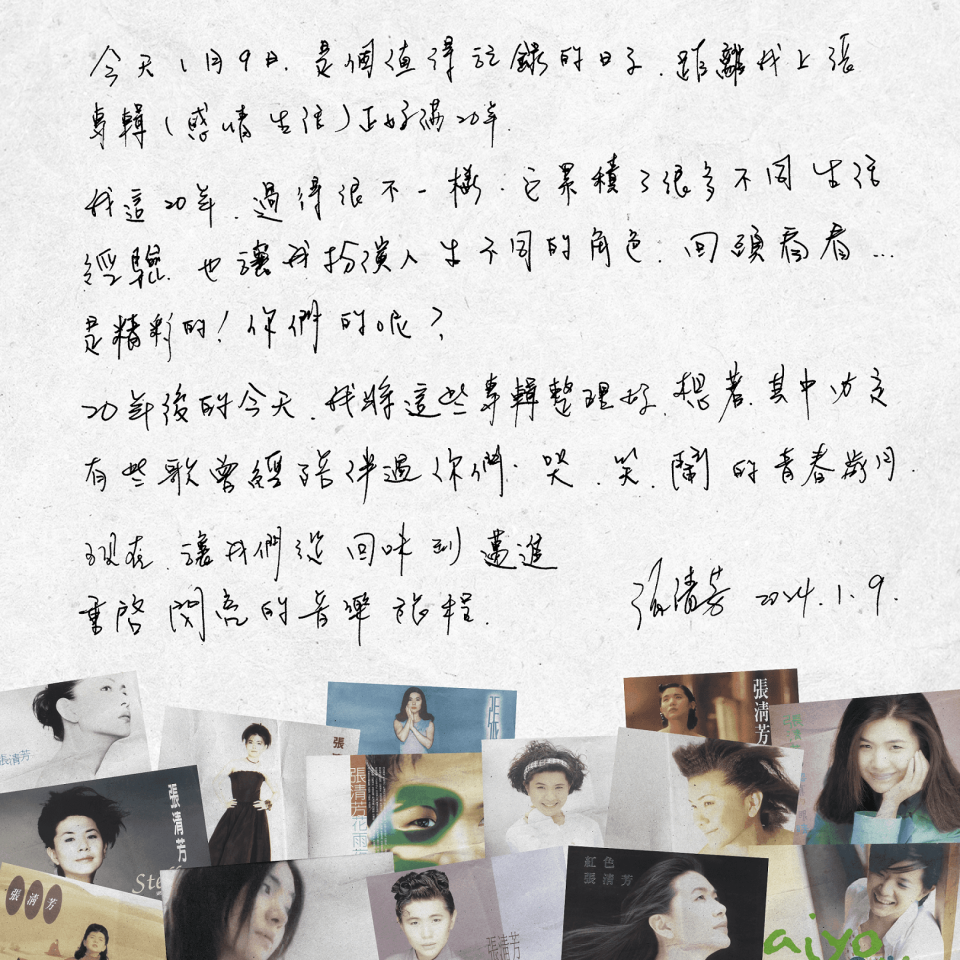 今天1月9日、是個值得記錄的日子、距離我上張
專輯(感情生活)正好滿20年.
我這20年、過得很不一樣、它累積了很多不同生活
經驗、也讓我扮演人生不同的角色、回頭看看...
是精彩的！你們的呢？
20年後的今天、我將這些專輯整理好、想著、其中必定
有些歌曾經陪伴過你們、哭、笑、鬧的青春歲月.
現在、讓我們從回味到邁進
重啓閃亮的音樂旅程.
張清芳 2024.1.9.
張清芳
張
張清芳
張清芳
張清芳花雨
張清芳
Ste
張清芳
張清芳
紅色
張清芳
aiyo